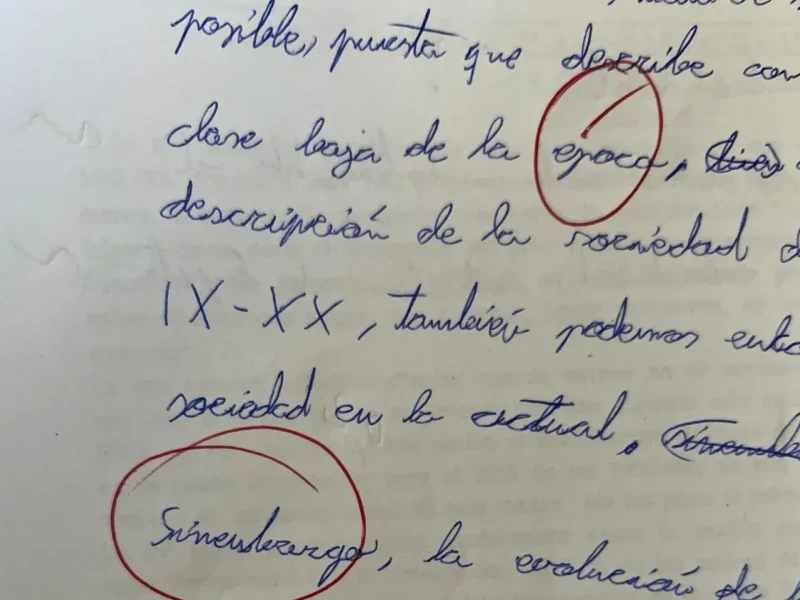 posible, puesta que describe con
clase baja de la epoca,
descripción de la sociedad d
IX-XX, también podemos ent
sociedad en la actual,
Sinembargo, la evolución de l